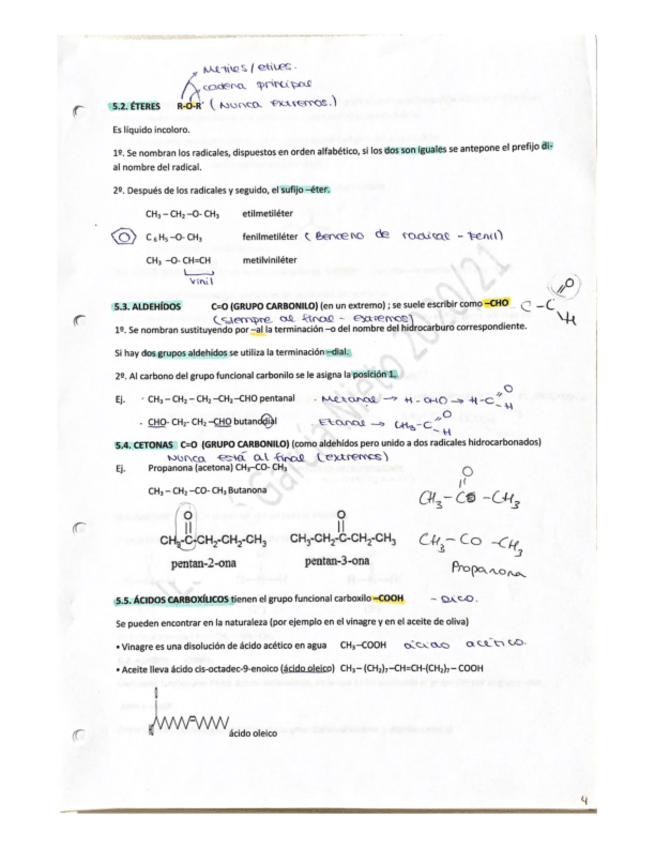 Metilos/etilos.
cadena principal
5.2. ÉTERES R-O-R' (Nunca extremos.)
Es líquido incoloro.
1º. Se nombran los radicales, dispuestos en orden alfabético, si los dos son iguales se antepone el prefijo di-
al nombre del radical.
2º. Después de los radicales y seguido, el sufijo –éter.
CH₃ – CH₂ –O- CH₃ etilmetiléter
C₆H₅ –O- CH₃ fenilmetiléter (Benceno de radical - Fenil)
CH₃ –O- CH=CH metilviniléter
vinil
5.3. ALDEHÍDOS C=O (GRUPO CARBONILO) (en un extremo) ; se suele escribir como –CHO C – C O H
(siempre al final - extremos)
1º. Se nombran sustituyendo por –al la terminación –o del nombre del hidrocarburo correspondiente.
Si hay dos grupos aldehídos se utiliza la terminación –dial.
2º. Al carbono del grupo funcional carbonilo se le asigna la posición 1.
Ej. · CH₃ – CH₂ – CH₂ –CH₂–CHO pentanal . Metanal → H - CHO → H-C O H
. CHO- CH₂- CH₂ –CHO butanodial Etanal → CH₃-C O H
5.4. CETONAS C=O (GRUPO CARBONILO) (como aldehídos pero unido a dos radicales hidrocarbonados)
Nunca está al final (extremos)
Ej. Propanona (acetona) CH₃–CO- CH₃
O
CH₃ – CH₂ –CO- CH₃ Butanona CH₃ – C – CH₃
O O
CH₃-C-CH₂-CH₂-CH₃ CH₃-CH₂-C-CH₂-CH₃ CH₃ – CO – CH₃
pentan-2-ona pentan-3-ona Propanona
5.5. ÁCIDOS CARBOXÍLICOS tienen el grupo funcional carboxilo –COOH - oico.
Se pueden encontrar en la naturaleza (por ejemplo en el vinagre y en el aceite de oliva)
• Vinagre es una disolución de ácido acético en agua CH₃–COOH ácido acético.
• Aceite lleva ácido cis-octadec-9-enoico (ácido oleico) CH₃ – (CH₂)₇ –CH=CH-(CH₂)₇ – COOH
ácido oleico
García Nieto 2020/21
4